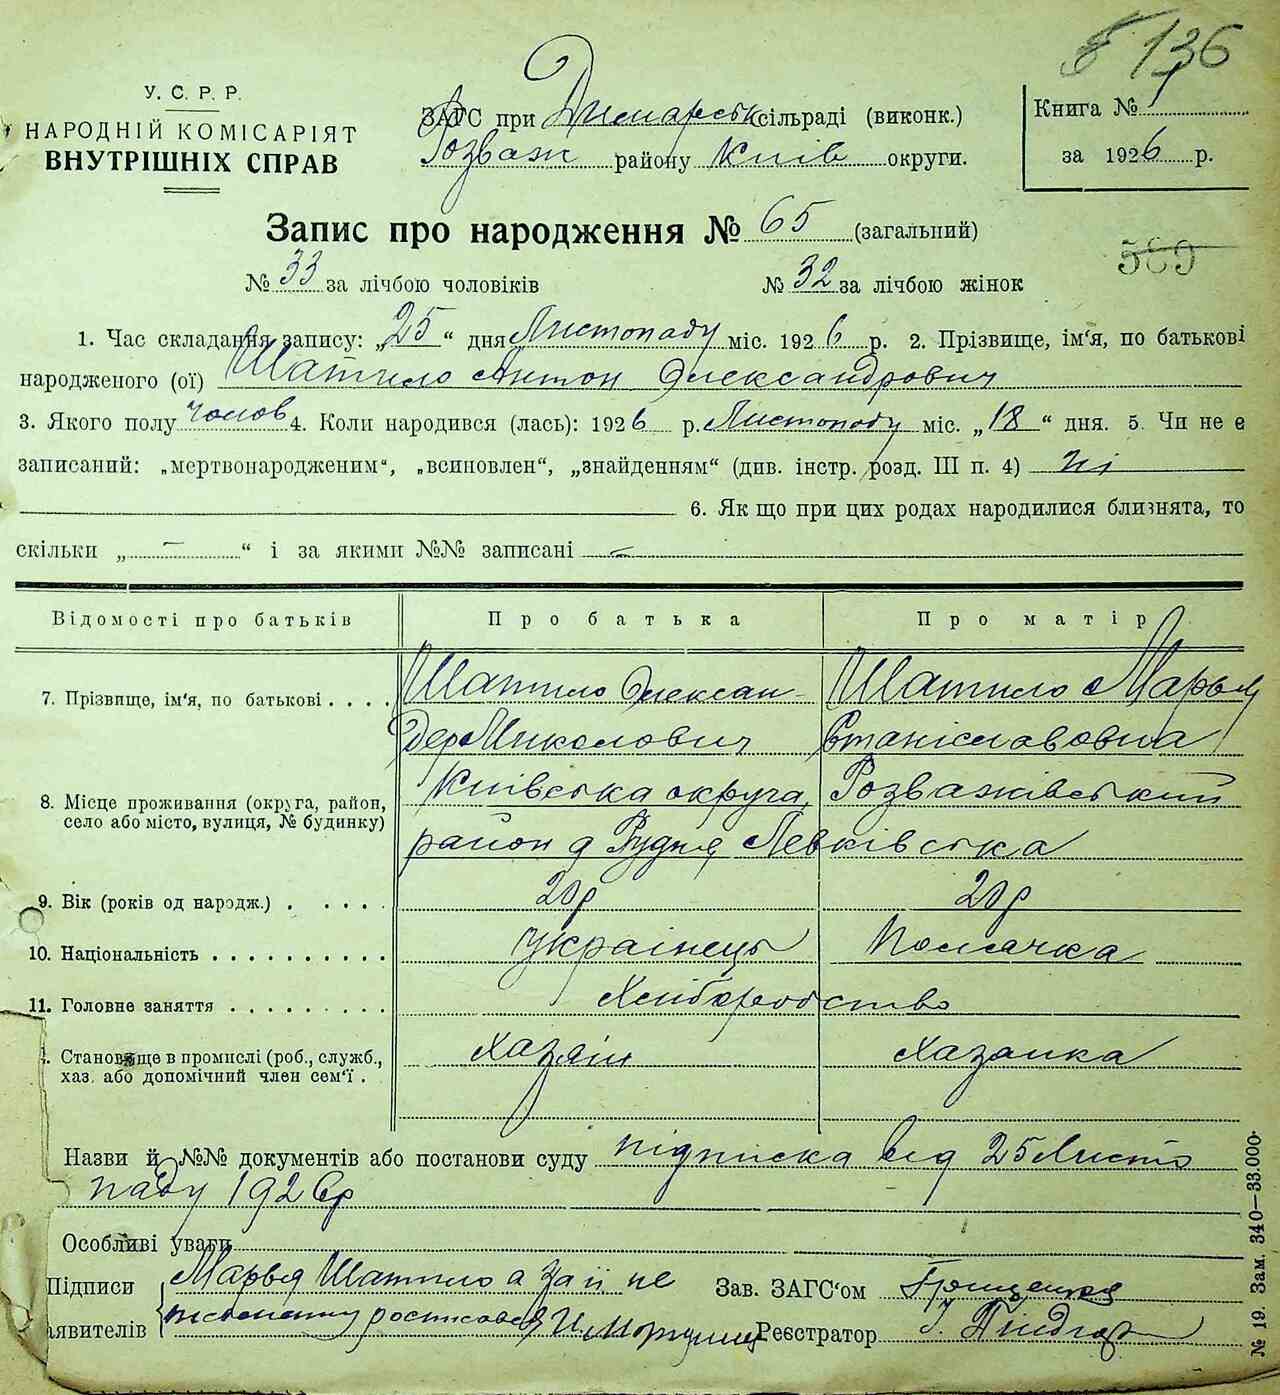 136
У. С. Р. Р.
НАРОДНІЙ КОМІСАРІЯТ
ВНУТРІШНІХ СПРАВ
ЗАГС при Димарськ сільраді (виконк.)
Розваж району Київ округи.
Книга № 1
за 1926 р.
Запис про народження № 65 (загальний)
№ 33 за лічбою чоловіків № 32 за лічбою жінок
589
1. Час складання запису: „25“ дня Листопаду міс. 1926 р. 2. Прізвище, ім'я, по батькові
народженого (ої) Шатило Антон Олександрович
3. Якого полу чолов 4. Коли народився (лась): 1926 р. Листопаду міс. „18“ дня. 5. Чи не є
записаний: „мертвонародженим“, „всиновлен“, „знайденням“ (див. інстр. розд. III п. 4) ні
6. Як що при цих родах народилися близнята, то
скільки „ — “ і за якими №№ записані —
Відомості про батьків Про батька Про матір
7. Прізвище, ім'я, по батькові . . . . Шатило Олексан- Шатило Марья
дер Миколович Станіславовна
8. Місце проживання (округа, район,
село або місто, вулиця, № будинку)
Київська округа, Розважівський
район д Рудня Левківська
9. Вік (років од народж.) . . . . . 20р 20р
10. Національність . . . . . . . . . . українець полячка
11. Головне заняття . . . . . . . . . Хліборобство
Становище в промислі (роб., служб.,
хаз. або допомічний член сем'ї . Хазяїн Хазаика
Назви й №№ документів або постанови суду підписка від 25 Листо
паду 1926р
Особливі уваги
Підписи Марья Шатило а за її не Зав. ЗАГС'ом Грищенко
аявителів ростисовся И. Реєстратор І.
№ 19. Зам. 340—33.000.